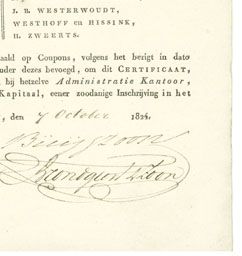 J. H. WESTERWOUDT,
WESTHOFF en HISSINK,
H. ZWEERTS.
aald op Coupons, volgens het berigt in dato
nder dezes bevoegd, om dit CERTIFICAAT,
bij hetzelve Administratie Kantoor,
Kapitaal, eener zoodanige Inschrijving in het
, den 7 October 1824.
Zoon
Zoon